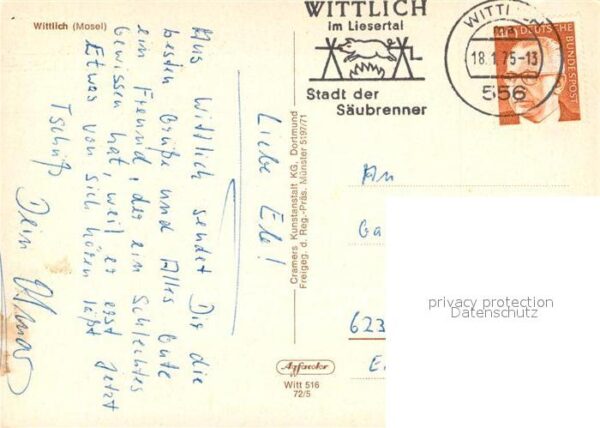 Wittlich (Mosel)
Liebe Ele!
Aus Wittlich sendet Dir die
besten Grüße und Alles Gute
ein Freund, der ein Schlechtes
Gewissen hat, weil er erst Jetzt
Etwas von sich hören läßt
Tschüß
Dein
Cramers Kunstanstalt KG, Dortmund
Freigeg. d. Reg.-Präs. Münster 5197/71
WITTLICH
im Liesertal
Stadt der
Säubrenner
WITTLICH
18.1.75-13
556
DEUTSCHE BUNDESPOST
An
623
privacy protection
Datenschutz
Witt 516
72/5